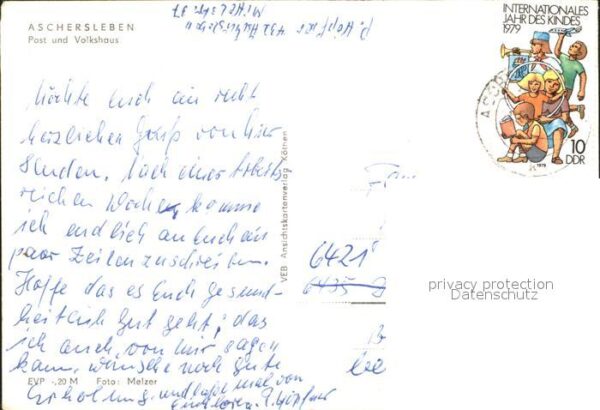 ASCHERSLEBEN
Post und Volkshaus
432 Aschersleben
INTERNATIONALES
JAHR DES KINDES
1979
10
DDR
1979
Möchte Euch ein recht
herzlichen Gruß von hier
Senden. Nach einer Arbeits
reichen Wochen, komme
ich endlich an Euch ein
paar Zeilen zuschreiben.
Hoffe das es Euch gesund-
heitlich gut geht, das
ich auch von mir sagen
kann, wünsche noch gute
Erholung, und laßt mal von
Euch hören.
VEB Ansichtskartenverlag Köthen
6421
6435
privacy protection
Datenschutz
EVP -,20 M Foto: Melzer